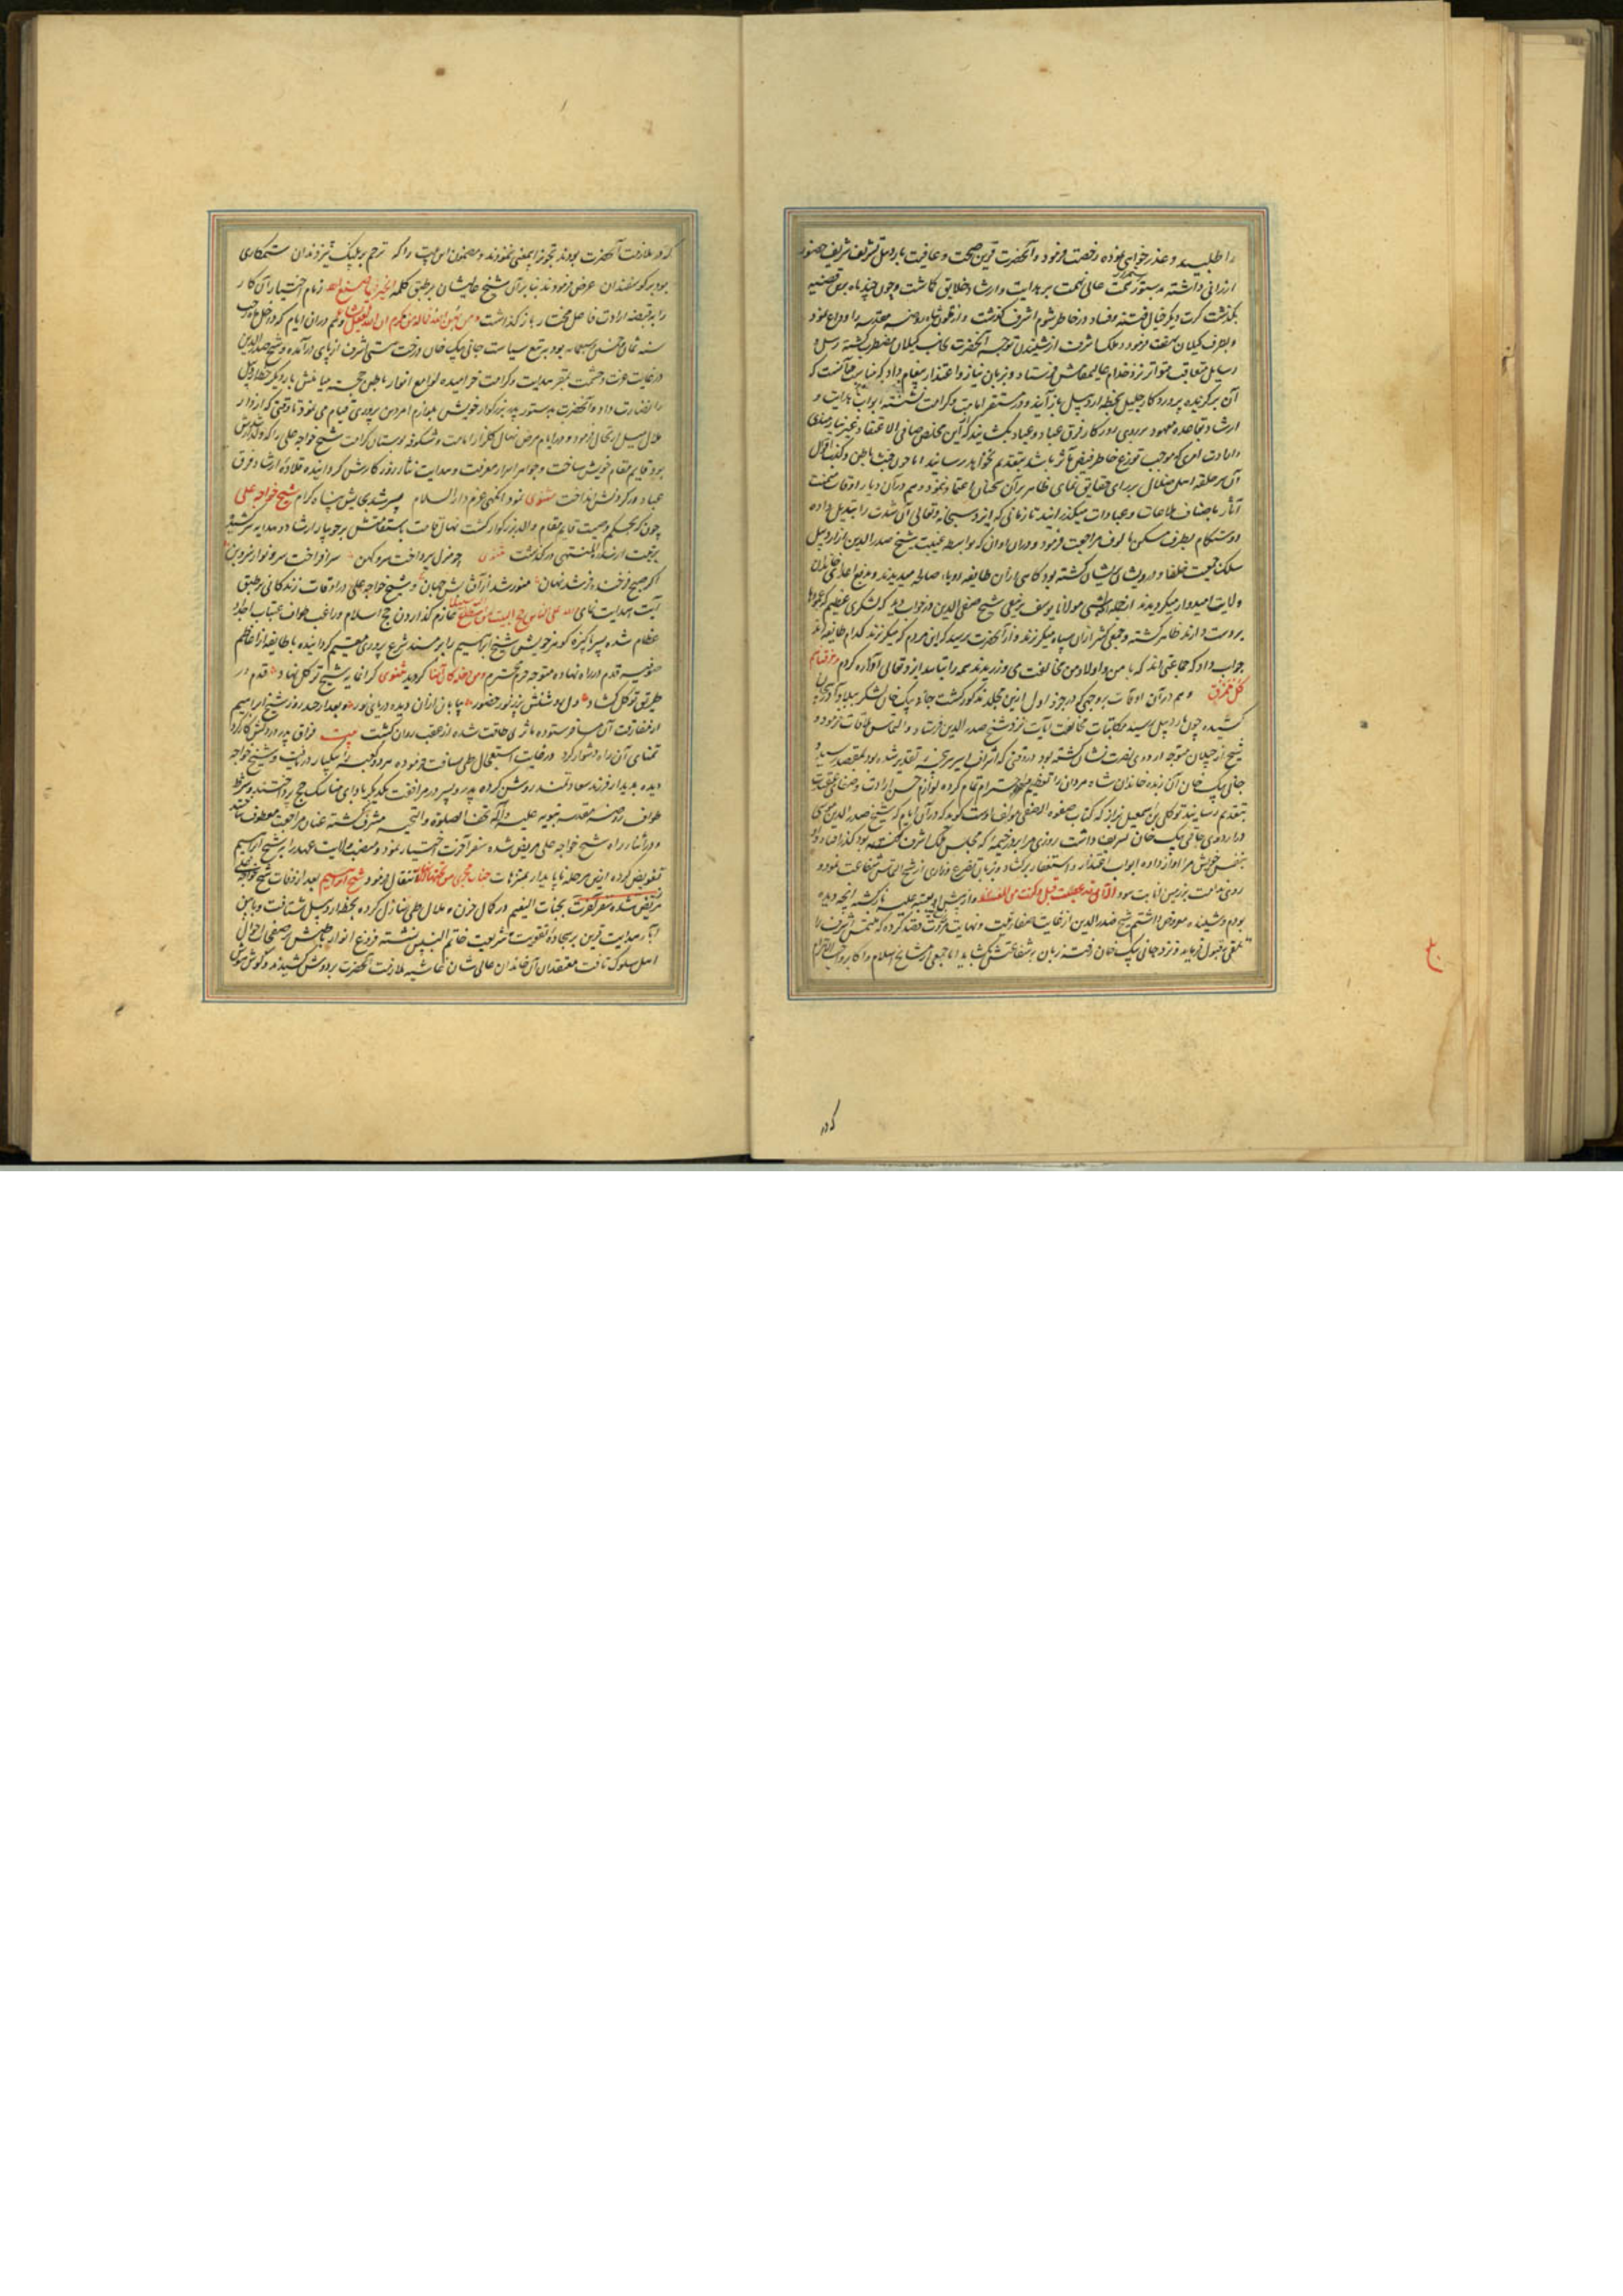 را طلبید و عذرخواهی نموده رخصت فرمود و آنحضرت قرین صحت و عافیت باردبیل تشریف شریف حضور
ارزانی داشته بدستور همت عالی نهمت بر هدایت و ارشاد خلایق کماشت و چون چند ماه برین قضیه
بگذشت کرت دیگر خیال فتنه و فساد در خاطر شوم اشرف گذشت و روضه مقدسه را وداع نمود
و بطرف گیلان نهضت فرمود و ملک اشرف از شنیدن توجه آنحضرت بجانب گیلان مضطرب گشته رسل و
رسایل متعاقب متواتر نزد خدام عالیمقامش فرستاد و بزبان نیاز و اعتذار پیغام داد که مناسب آنست که
آن برگزیده پروردگار جلیل بخطه اردبیل باز آیند و در مستقر امامت و کرامت نشسته ابواب هدایت و
ارشاد بقاعده معهود بر روی روزگار فرق عباد و عباد بگشایند که این مخلص صافی الاعتقاد بغیر نیازمندی
و ارادت امری که موجب توزع خاطر فیض مآثر باشد بتقدیم نخواهد رسانید اما چون خبث باطن و کذب اقوال
آن سر حلقه اهل ضلال بر رای حقایق نمای ظاهر بر آن سخنان اعتماد ننمود و هم در آن دیار اوقات میمنت
آثار باصناف طاعات و عبادات میگذرانید تا زمانی که ایزد سبحانه و تعالی آن شدت را تبدیل داده
دوستکام بطرف مسکن مالوف مراجعت فرمود و در آن اوان که بواسطه غیبت شیخ صدرالدین از اردبیل
سلک جمعیت خلفا و درویشان پریشان گشته بود گاهی از آن طایفه رویاء صالحه میدیدند و بدفع اعادی خاندان
ولایت امیدوار میگردیدند از جمله شبی مولانا یوسف شیخ صفی الدین در خواب دید که لشکری عظیم که عمودها
بر دست دارند ظاهر گشته و جمعی کثیر از آن سپاه میگریزند و از آنحضرت پرسید که این مردم که میگریزند کدام طایفه اند
جواب داد که جماعتی اند که با من و اولاد من مخالفت می ورزیدند همه را بتایید ایزد تعالی آواره کردم و مزقناهم
کل ممزق و هم در آن اوقات بروجهی که در جزو اول ازین مجلد مذکور گشت جانی بیک خان لشکر ببلاد آذربایجان
کشیده چون باردبیل رسید مکاتبات نزد شیخ صدرالدین فرستاد و التماس ملاقات فرمود و
شیخ از جیلان متوجه اردوی نصرت نشان گشته بود در وقتی که اشرف اسیر سرپنجه تقدیر شده بود بمقصد رسید و
جانی بیک خان آن زبده خاندان شاه مردان را تعظیم و احترام تمام کرده لوازم حسن ارادت و صفای عقیدت
بتقدیم رسانید توکل بن اسمعیل بزاز که کتاب صفوة الصفا مولف اوست گوید که در آن ایام که شیخ صدرالدین موسی
در اردوی جانی بیک خان تشریف داشت روزی مرا بر در خیمه که مجلس ملک اشرف گشته بود گذر افتاد و او
بنفس خویش مرا آواز داده ابواب اعتذار و استغفار برگشاد و بزبان تضرع و زاری از شیخ التماس شفاعت نمود و
روی ندامت بر زمین انابت سود الآن وقد عصیت قبل وکنت من المفسدین و از پیش او بعتبه علیه بازگشته آنچه دیده
بودم و شنیده معروض داشتم شیخ صدرالدین از غایت شفقت و نهایت مروت قصد کرده که ملتمس اشرف را
تلقی بقبول فرماید و نزد جانی بیک خان رفته زبان بشفاعتش بگشاید اما جمعی از مشایخ اسلام و اکابر واجب الاحترام
که در
که در ملازمت آنحضرت بودند تجویز این معنی ننمودند و مضمون این بیت را که ترحم بر پلنگ تیزدندان ستمکاری
بود بر گوسفندان عرض فرمودند بنابر آن شیخ عالیشان بر طبق کلمه الخیر فیما صنع الله زمام اختیار آن کار
را به قبضه ارادت فاعل مختار باز گذاشت ومن یهن الله فماله من مکرم ان الله یفعل ما یشاء و هم در آن ایام که داخل ماه رجب
سنه ثمان و خمسین و سبعمایه بود به تیغ سیاست جانی بیک خان درخت هستی اشرف از پای درآمده و شیخ صدرالدین
در غایت عزت و حشمت بمقر هدایت و کرامت خرامیده لوامع انوار باطن خجسته میامنش بار دیگر خطه اردبیل
را نضارت داد و آنحضرت بدستور پدر بزرگوار خویش بلوازم امر دین پروری قیام می نمود تا وقتی که از دار
ملال میل ارتحال فرمود و در ایام مرض نهال گلزار امامت و شکوفه بوستان کرامت شیخ خواجه علی را که ولد ارشدش
بود قایم مقام خویش ساخت و جواهر اسرار معرفت و هدایت نثار روزگارش گردانیده قلاده ارشاد فرق
عباد در گردنش انداخت مثنوی نمود آنگهی عزم دارالسلام پسر شد بجایش پناه کرام شیخ خواجه علی
چون که بحکم وصیت قایم مقام والد بزرگوار گشت نهال قامت باستقامتش بر جویبار ارشاد و هدایه سر کشیده
برفعت از سدرة المنتهی درگذشت مثنوی چو منزل بپرداخت سرو کهن سرافراخت سرو نو از سرو بن
اگر صبح فرخنده رخ شد نهان منور شد از آفتابش جهان و شیخ خواجه علی در اوقات زندگانی بر طبق
آیت هدایت نمای ولله علی الناس حج البیت من استطاع الیه سبیلا عازم گذاردن حج اسلام و راغب طواف عتبات اجداد
عظام شده پسر پاکیزه گوهر خویش شیخ ابراهیم را بر مسند شرع پروری مقیم گردانیده با طایفه از اعاظم
صوفیه قدم در راه نهاده متوجه حرم محترم ومن دخله کان آمنا گردید مثنوی کرانمایه شیخ توکل نهاد قدم در
طریق توکل گشاد دل روشنش پر ز نور حضور بیابان از آن دیده دریای نور و بعد از چند روز شیخ ابراهیم
از مفارقت آن مسافر ستوده مآثر بی طاقت شده از عقب روان گشت بیت فراق پدر در دلش کار کرد
تمنای آن راه دشوار کرد در غایت استعجال طی مسافت فرموده مرد و کعبه را بیکبار دریافت و شیخ خواجه
دیده بدیدار فرزند سعادتمند روشن کرده پدر و پسر در مرافقت یکدیگر بادای مناسک حج پرداختند و بشرف
طواف روضه مقدسه نبویه علیه و آله تحف الصلوة والتحیه مشرف گشته عنان مراجعت معطوف ساختند
و در اثناء راه شیخ خواجه علی مریض شده سفر آخرت اختیار نمود و منصب ولایت عهد را بر شیخ ابراهیم
تفویض کرده ازین مرحله ناپایدار بمتنزهات جنات تجری من تحتها الانهار انتقال فرمود شیخ ابراهیم بعد از وفات شیخ خواجه علی
مریض شده سفر آخرت بجنات النعیم در کمال حزن و ملال طی منازل کرده بخطه اردبیل شتافت و بآیین
آباء هدایت قرین بر سجاده تقویت شریعت خاتم النبیین نشسته فروغ انوار باطنش بر صفحات احوال
اهل سلوک تافت معتقدان آن خاندان عالی شان غاشیه ملازمت آنحضرت بر دوش کشیدند و گوش هوش